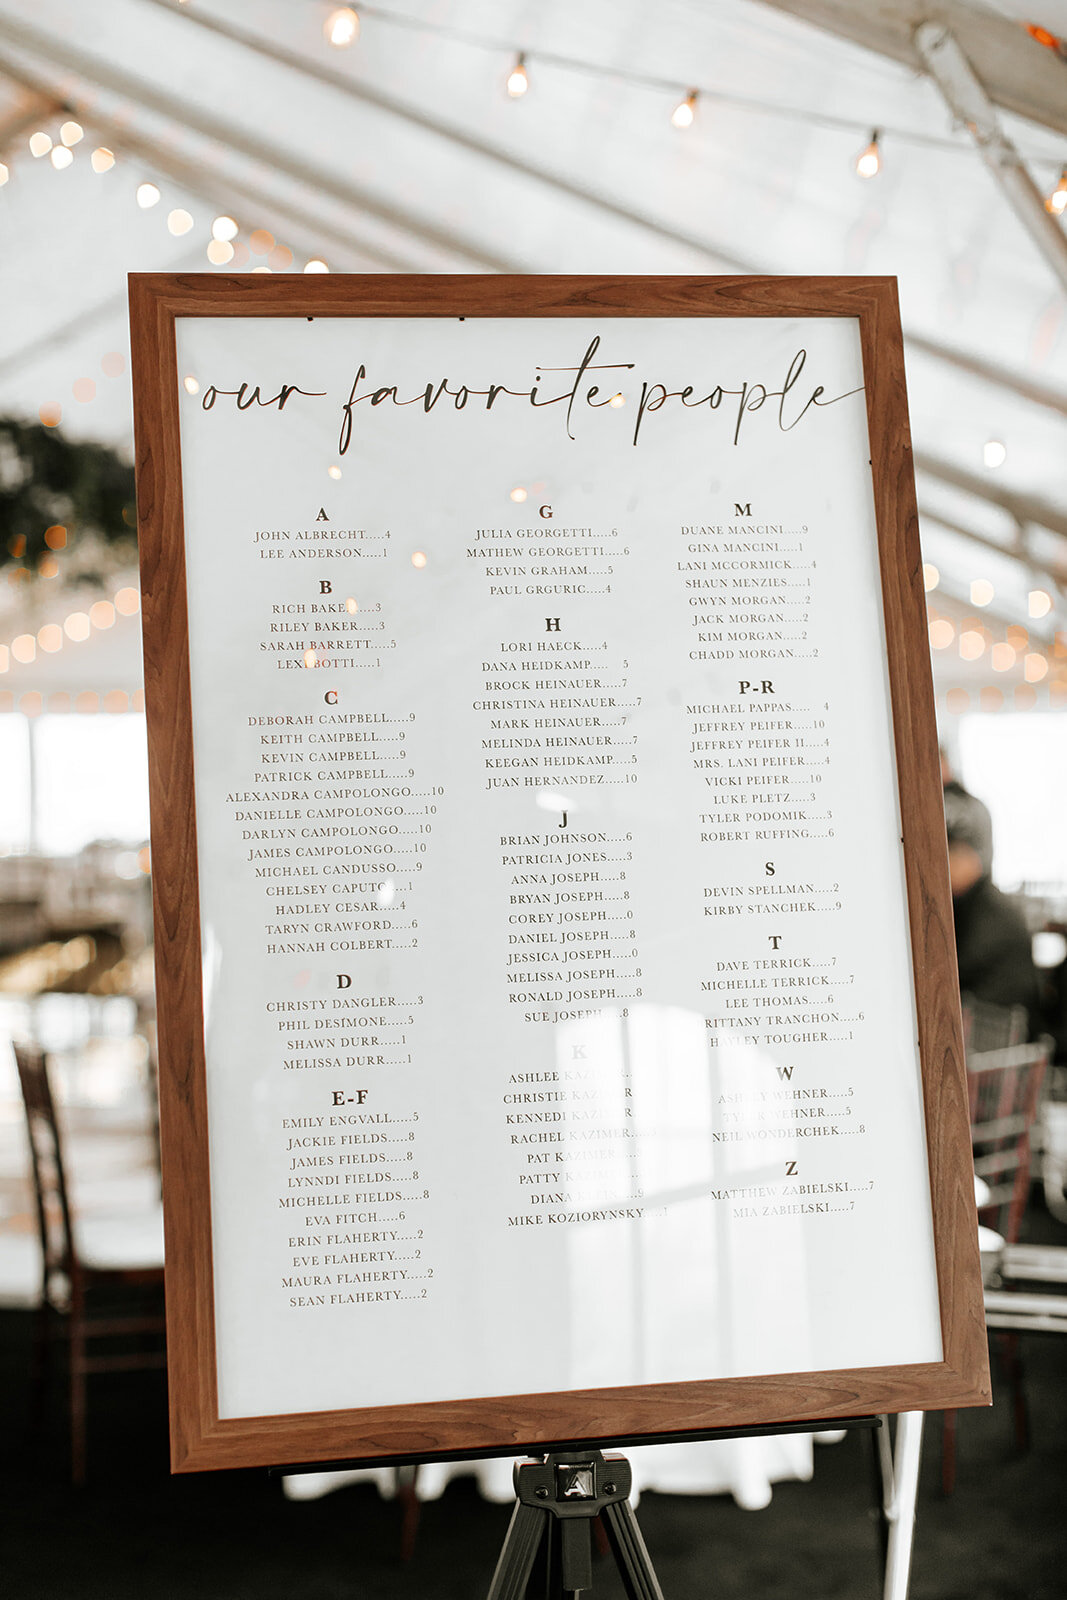 our favorite people
A
JOHN ALBRECHT.....4
LEE ANDERSON.....1
B
RICH BAKER.....3
RILEY BAKER.....3
SARAH BARRETT.....5
LEXI BOTTI.....1
C
DEBORAH CAMPBELL.....9
KEITH CAMPBELL.....9
KEVIN CAMPBELL.....9
PATRICK CAMPBELL.....9
ALEXANDRA CAMPOLONGO.....10
DANIELLE CAMPOLONGO.....10
DARLYN CAMPOLONGO.....10
JAMES CAMPOLONGO.....10
MICHAEL CANDUSSO.....9
CHELSEY CAPUTO.....1
HADLEY CESAR.....4
TARYN CRAWFORD.....6
HANNAH COLBERT.....2
D
CHRISTY DANGLER.....3
PHIL DESIMONE.....5
SHAWN DURR.....1
MELISSA DURR.....1
E-F
EMILY ENGVALL.....5
JACKIE FIELDS.....8
JAMES FIELDS.....8
LYNNDI FIELDS.....8
MICHELLE FIELDS.....8
EVA FITCH.....6
ERIN FLAHERTY.....2
EVE FLAHERTY.....2
MAURA FLAHERTY.....2
SEAN FLAHERTY.....2
G
JULIA GEORGETTI.....6
MATHEW GEORGETTI.....6
KEVIN GRAHAM.....5
PAUL GRGURIC.....4
H
LORI HAECK.....4
DANA HEIDKAMP..... 5
BROCK HEINAUER.....7
CHRISTINA HEINAUER.....7
MARK HEINAUER.....7
MELINDA HEINAUER.....7
KEEGAN HEIDKAMP.....5
JUAN HERNANDEZ.....10
J
BRIAN JOHNSON.....6
PATRICIA JONES.....3
ANNA JOSEPH.....8
BRYAN JOSEPH.....8
COREY JOSEPH.....0
DANIEL JOSEPH.....8
JESSICA JOSEPH.....0
MELISSA JOSEPH.....8
RONALD JOSEPH.....8
SUE JOSEPH.....8
K
ASHLEE KAZIMER
CHRISTIE KAZIMER
KENNEDI KAZIMER
RACHEL KAZIMER.....
PAT KAZIMER.....
PATTY KAZIMER
DIANA KLEIN.....9
MIKE KOZIORYNSKY.....1
M
DUANE MANCINI.....9
GINA MANCINI.....1
LANI MCCORMICK.....4
SHAUN MENZIES.....1
GWYN MORGAN.....2
JACK MORGAN.....2
KIM MORGAN.....2
CHADD MORGAN.....2
P-R
MICHAEL PAPPAS..... 4
JEFFREY PEIFER.....10
JEFFREY PEIFER II.....4
MRS. LANI PEIFER.....4
VICKI PEIFER.....10
LUKE PLETZ.....3
TYLER PODOMIK.....3
ROBERT RUFFING.....6
S
DEVIN SPELLMAN.....2
KIRBY STANCHEK.....9
T
DAVE TERRICK.....7
MICHELLE TERRICK.....7
LEE THOMAS.....6
BRITTANY TRANCHON.....6
HAYLEY TOUGHER.....1
W
ASHLEY WEHNER.....5
TYLER WEHNER.....5
NEIL WONDERCHEK.....8
Z
MATTHEW ZABIELSKI.....7
MIA ZABIELSKI.....7